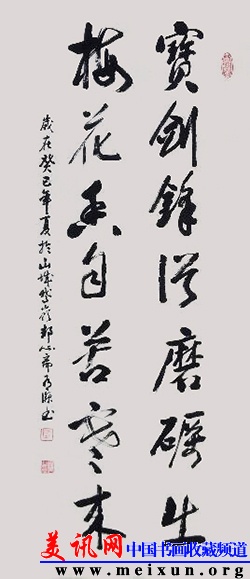 寶劍鋒從磨礪生
梅花香自苦寒来
歲在癸巳年夏於山城
美讯网 中国书画收藏频道
www.meixun.org